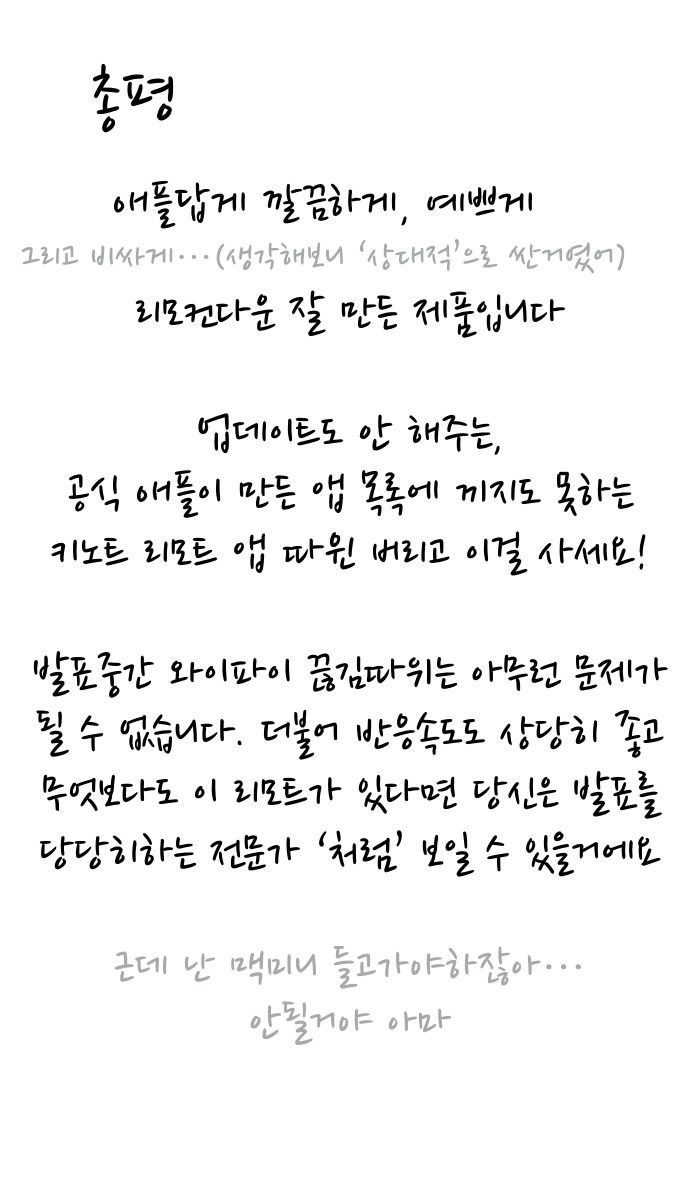 총평
애플답게 깔끔하게, 예쁘게
그리고 비싸게···(생각해보니 '상대적'으로 싼거였어)
리모컨다운 잘 만든 제품입니다
업데이트도 안 해주는,
공식 애플이 만든 앱 목록에 끼지도 못하는
키노트 리모트 앱 따윈 버리고 이걸 사세요!
발표중간 와이파이 끊김따위는 아무런 문제가
될 수 없습니다. 더불어 반응속도도 상당히 좋고
무엇보다도 이 리모트가 있다면 당신은 발표를
당당히하는 전문가 '처럼' 보일 수 있을거에요
근데 난 맥미니 들고가야하잖아···
안될거야 아마